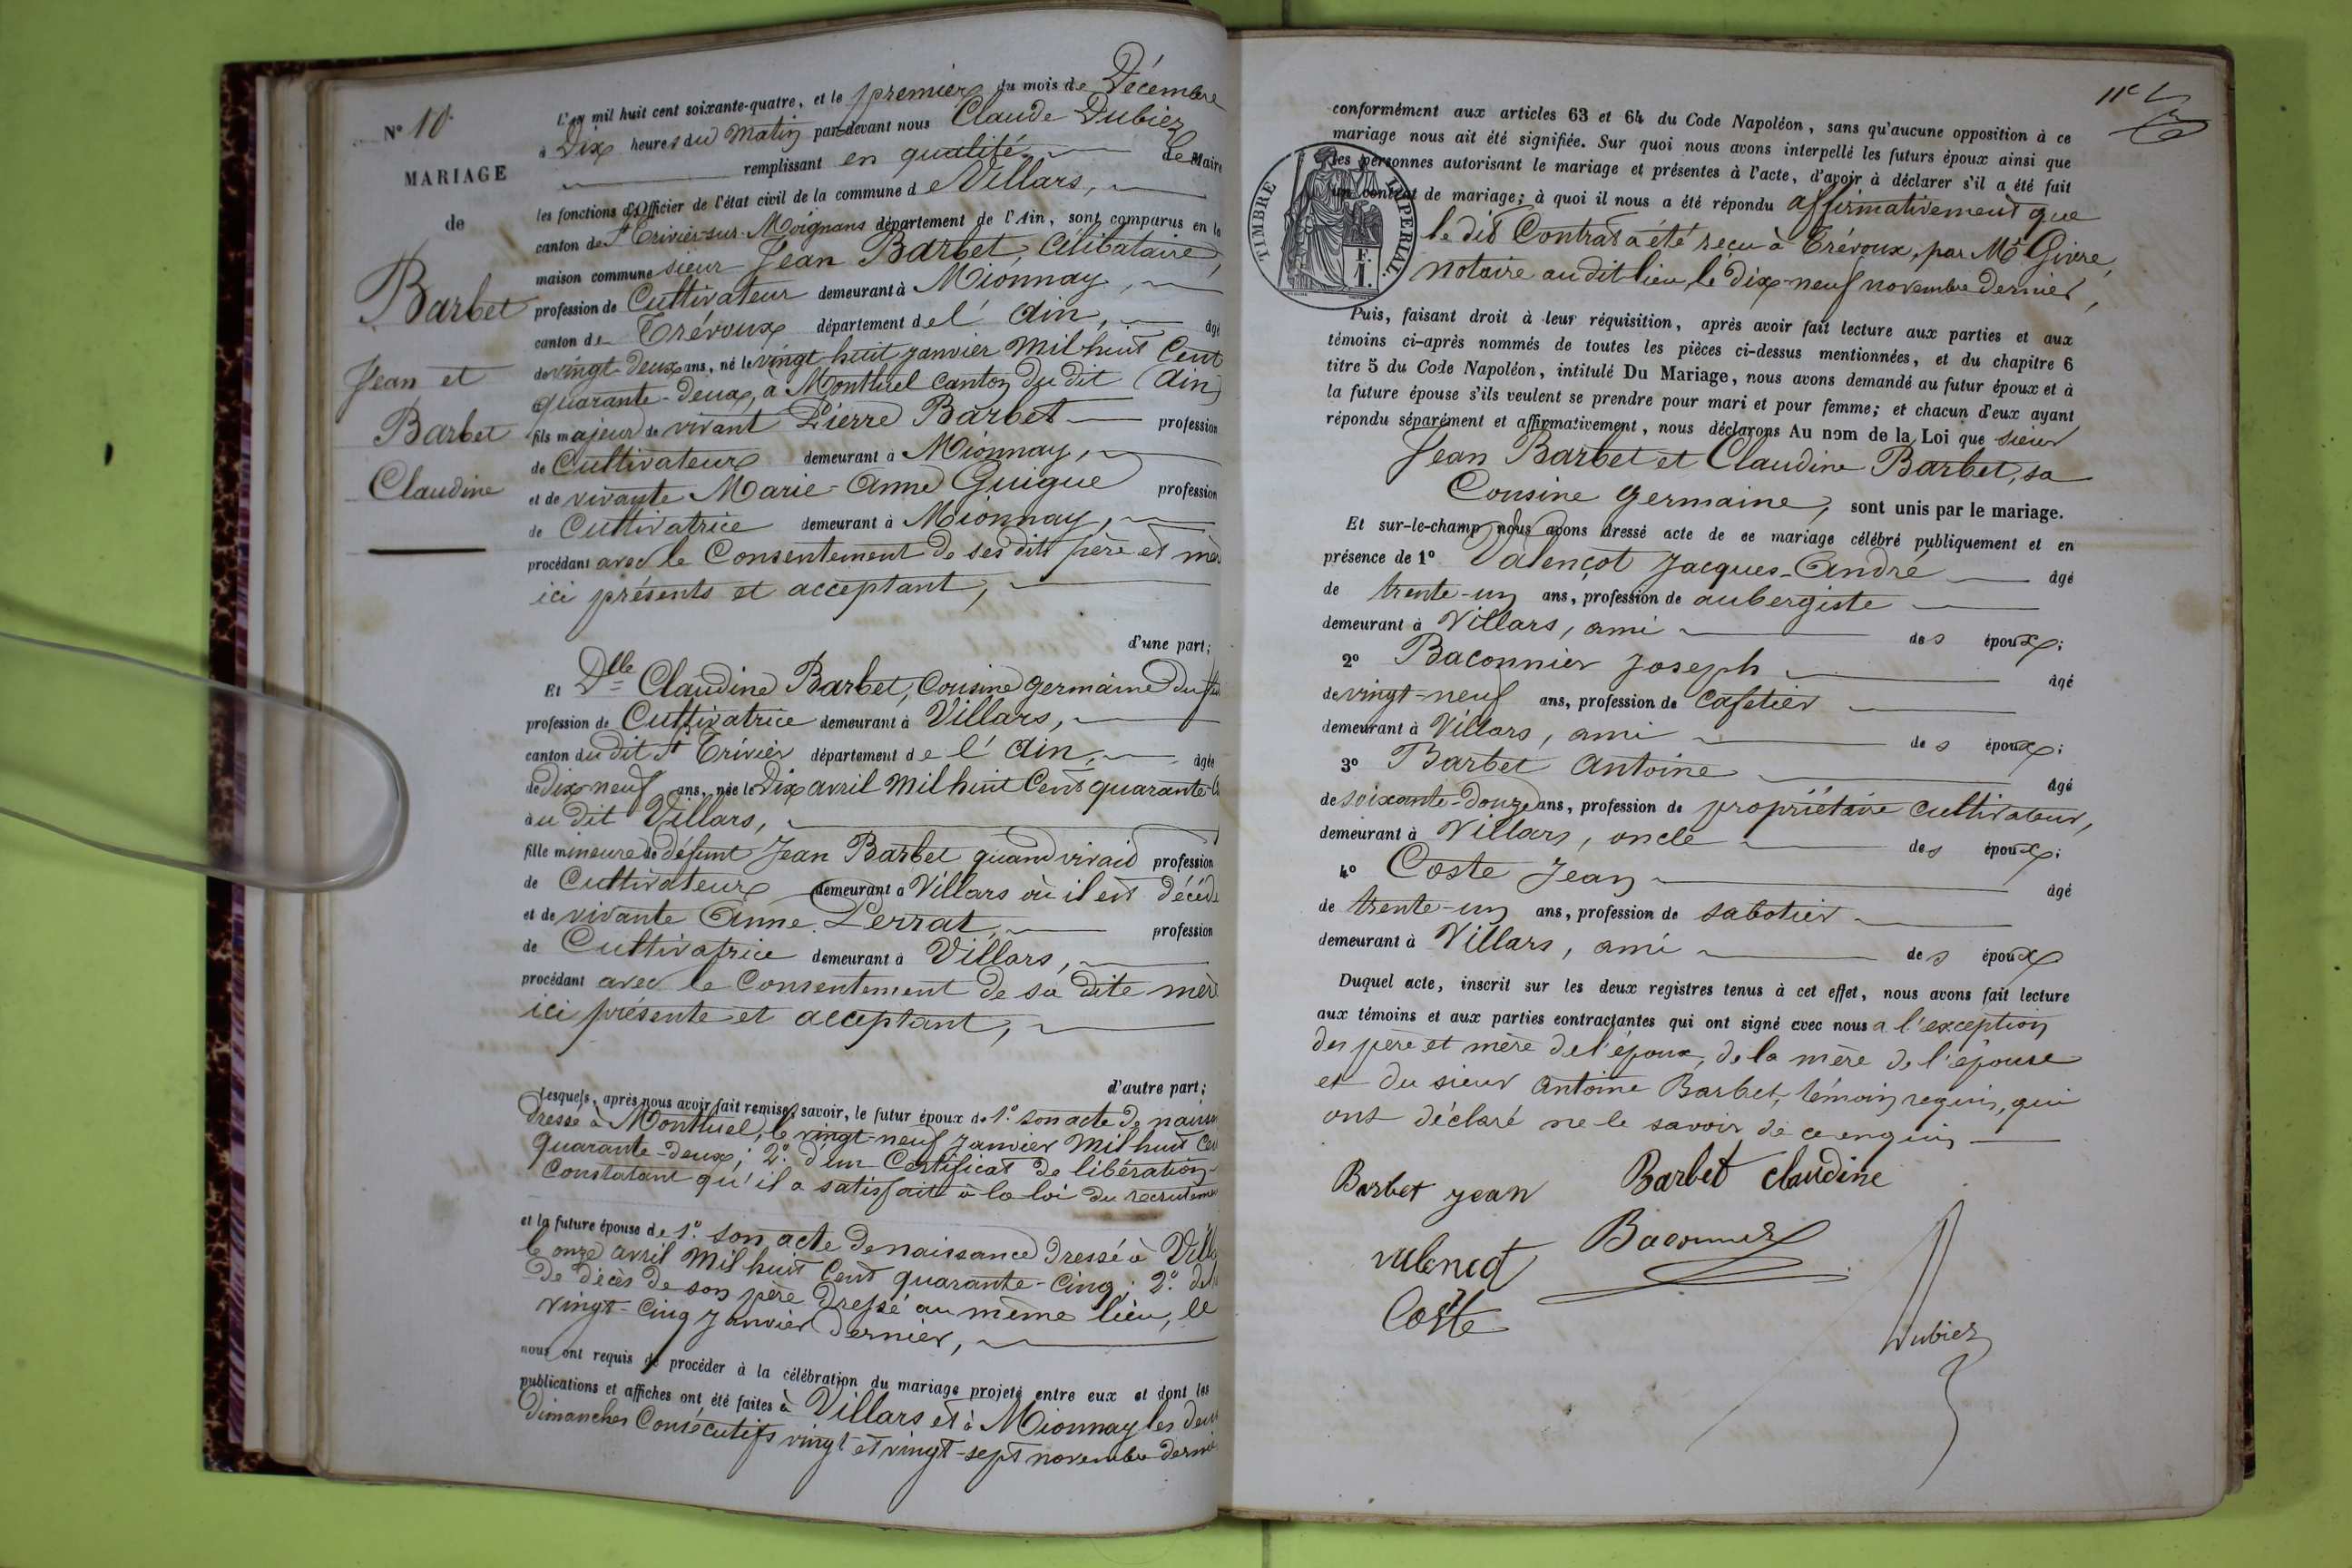 N° 10
MARIAGE
de
Barbet
Jean et
Barbet
Claudine
L'an mil huit cent soixante-quatre, et le premier du mois de Décembre
à Dix heures du Matin par-devant nous Claude Dubiez
remplissant en qualité de Maire
les fonctions d'Officier de l'état civil de la commune de Villars,
canton de St Trivier-sur-Moignans département de l'Ain, sont comparus en la
maison commune sieur Jean Barbet, Célibataire,
profession de Cultivateur demeurant à Mionnay,
canton de Trévoux département de l'Ain, âgé
de vingt-deux ans, né le vingt-huit janvier Mil huit Cent
quarante-deux, à Montluel canton du dit (Ain)
fils majeur de vivant Pierre Barbet profession
de Cultivateur demeurant à Mionnay,
et de vivante Marie-Anne Guigue profession
de Cultivatrice demeurant à Mionnay,
procédant avec le Consentement de ses dits père et mère
ici présents et acceptant,
d'une part;
Et Dlle Claudine Barbet, Cousine germaine du
profession de Cultivatrice demeurant à Villars,
canton du dit St Trivier département de l'Ain, âgée
de Dix-neuf ans, née le Dix avril Mil huit Cent quarante-
au dit Villars,
fille mineure de défunt Jean Barbet quand vivait profession
de Cultivateur demeurant à Villars où il est décédé
et de vivante Anne Perrat, profession
de Cultivatrice demeurant à Villars,
procédant avec le Consentement de sa dite mère
ici présente et acceptant,
d'autre part;
Lesquels, après nous avoir fait remise, savoir, le futur époux de 1° son acte de
dressé à Montluel, le vingt-neuf janvier Mil huit Cent
quarante-deux; 2° d'un Certificat de libération
Constatant qu'il a satisfait à la loi du
et la future épouse de 1° son acte de naissance dressé à
le onze avril Mil huit Cent quarante-cinq; 2°
de décès de son père dressé au même lieu, le
vingt-cinq janvier dernier,
nous ont requis de procéder à la célébration du mariage projeté entre eux et dont les
publications et affiches ont été faites à Villars et à Mionnay les deux
Dimanches Consécutifs vingt et vingt-sept novembre dernier
11e
conformément aux articles 63 et 64 du Code Napoléon, sans qu'aucune opposition à ce
mariage nous ait été signifiée. Sur quoi nous avons interpellé les futurs époux ainsi que
les personnes autorisant le mariage et présentes à l'acte, d'avoir à déclarer s'il a été fait
un contrat de mariage; à quoi il nous a été répondu affirmativement que
TIMBRE IMPÉRIAL.
F. 1.
le dit Contrat a été reçu à Trévoux, par Me Givre,
notaire au dit lieu, le dix-neuf novembre dernier,
Puis, faisant droit à leur réquisition, après avoir fait lecture aux parties et aux
témoins ci-après nommés de toutes les pièces ci-dessus mentionnées, et du chapitre 6
titre 5 du Code Napoléon, intitulé Du Mariage, nous avons demandé au futur époux et à
la future épouse s'ils veulent se prendre pour mari et pour femme; et chacun d'eux ayant
répondu séparément et affirmativement, nous déclarons Au nom de la Loi que sieur
Jean Barbet et Claudine Barbet, sa
Cousine germaine, sont unis par le mariage.
Et sur-le-champ nous avons dressé acte de ce mariage célébré publiquement et en
présence de 1° Valençot Jacques-André âgé
de trente-un ans, profession de aubergiste
demeurant à Villars, ami des époux;
2° Baconnier Joseph âgé
de vingt-neuf ans, profession de cafetier
demeurant à Villars, ami des époux;
3° Barbet Antoine âgé
de soixante-douze ans, profession de propriétaire cultivateur,
demeurant à Villars, oncle des époux;
4° Coste Jean âgé
de trente-un ans, profession de sabotier
demeurant à Villars, ami des époux
Duquel acte, inscrit sur les deux registres tenus à cet effet, nous avons fait lecture
aux témoins et aux parties contractantes qui ont signé avec nous a l'exception
des père et mère de l'époux, de la mère de l'épouse
et du sieur Antoine Barbet, témoin requis, qui
ont déclaré ne le savoir de ce enquis
Barbet jean Barbet claudine
valencot Baconnier
Coste
Dubiez